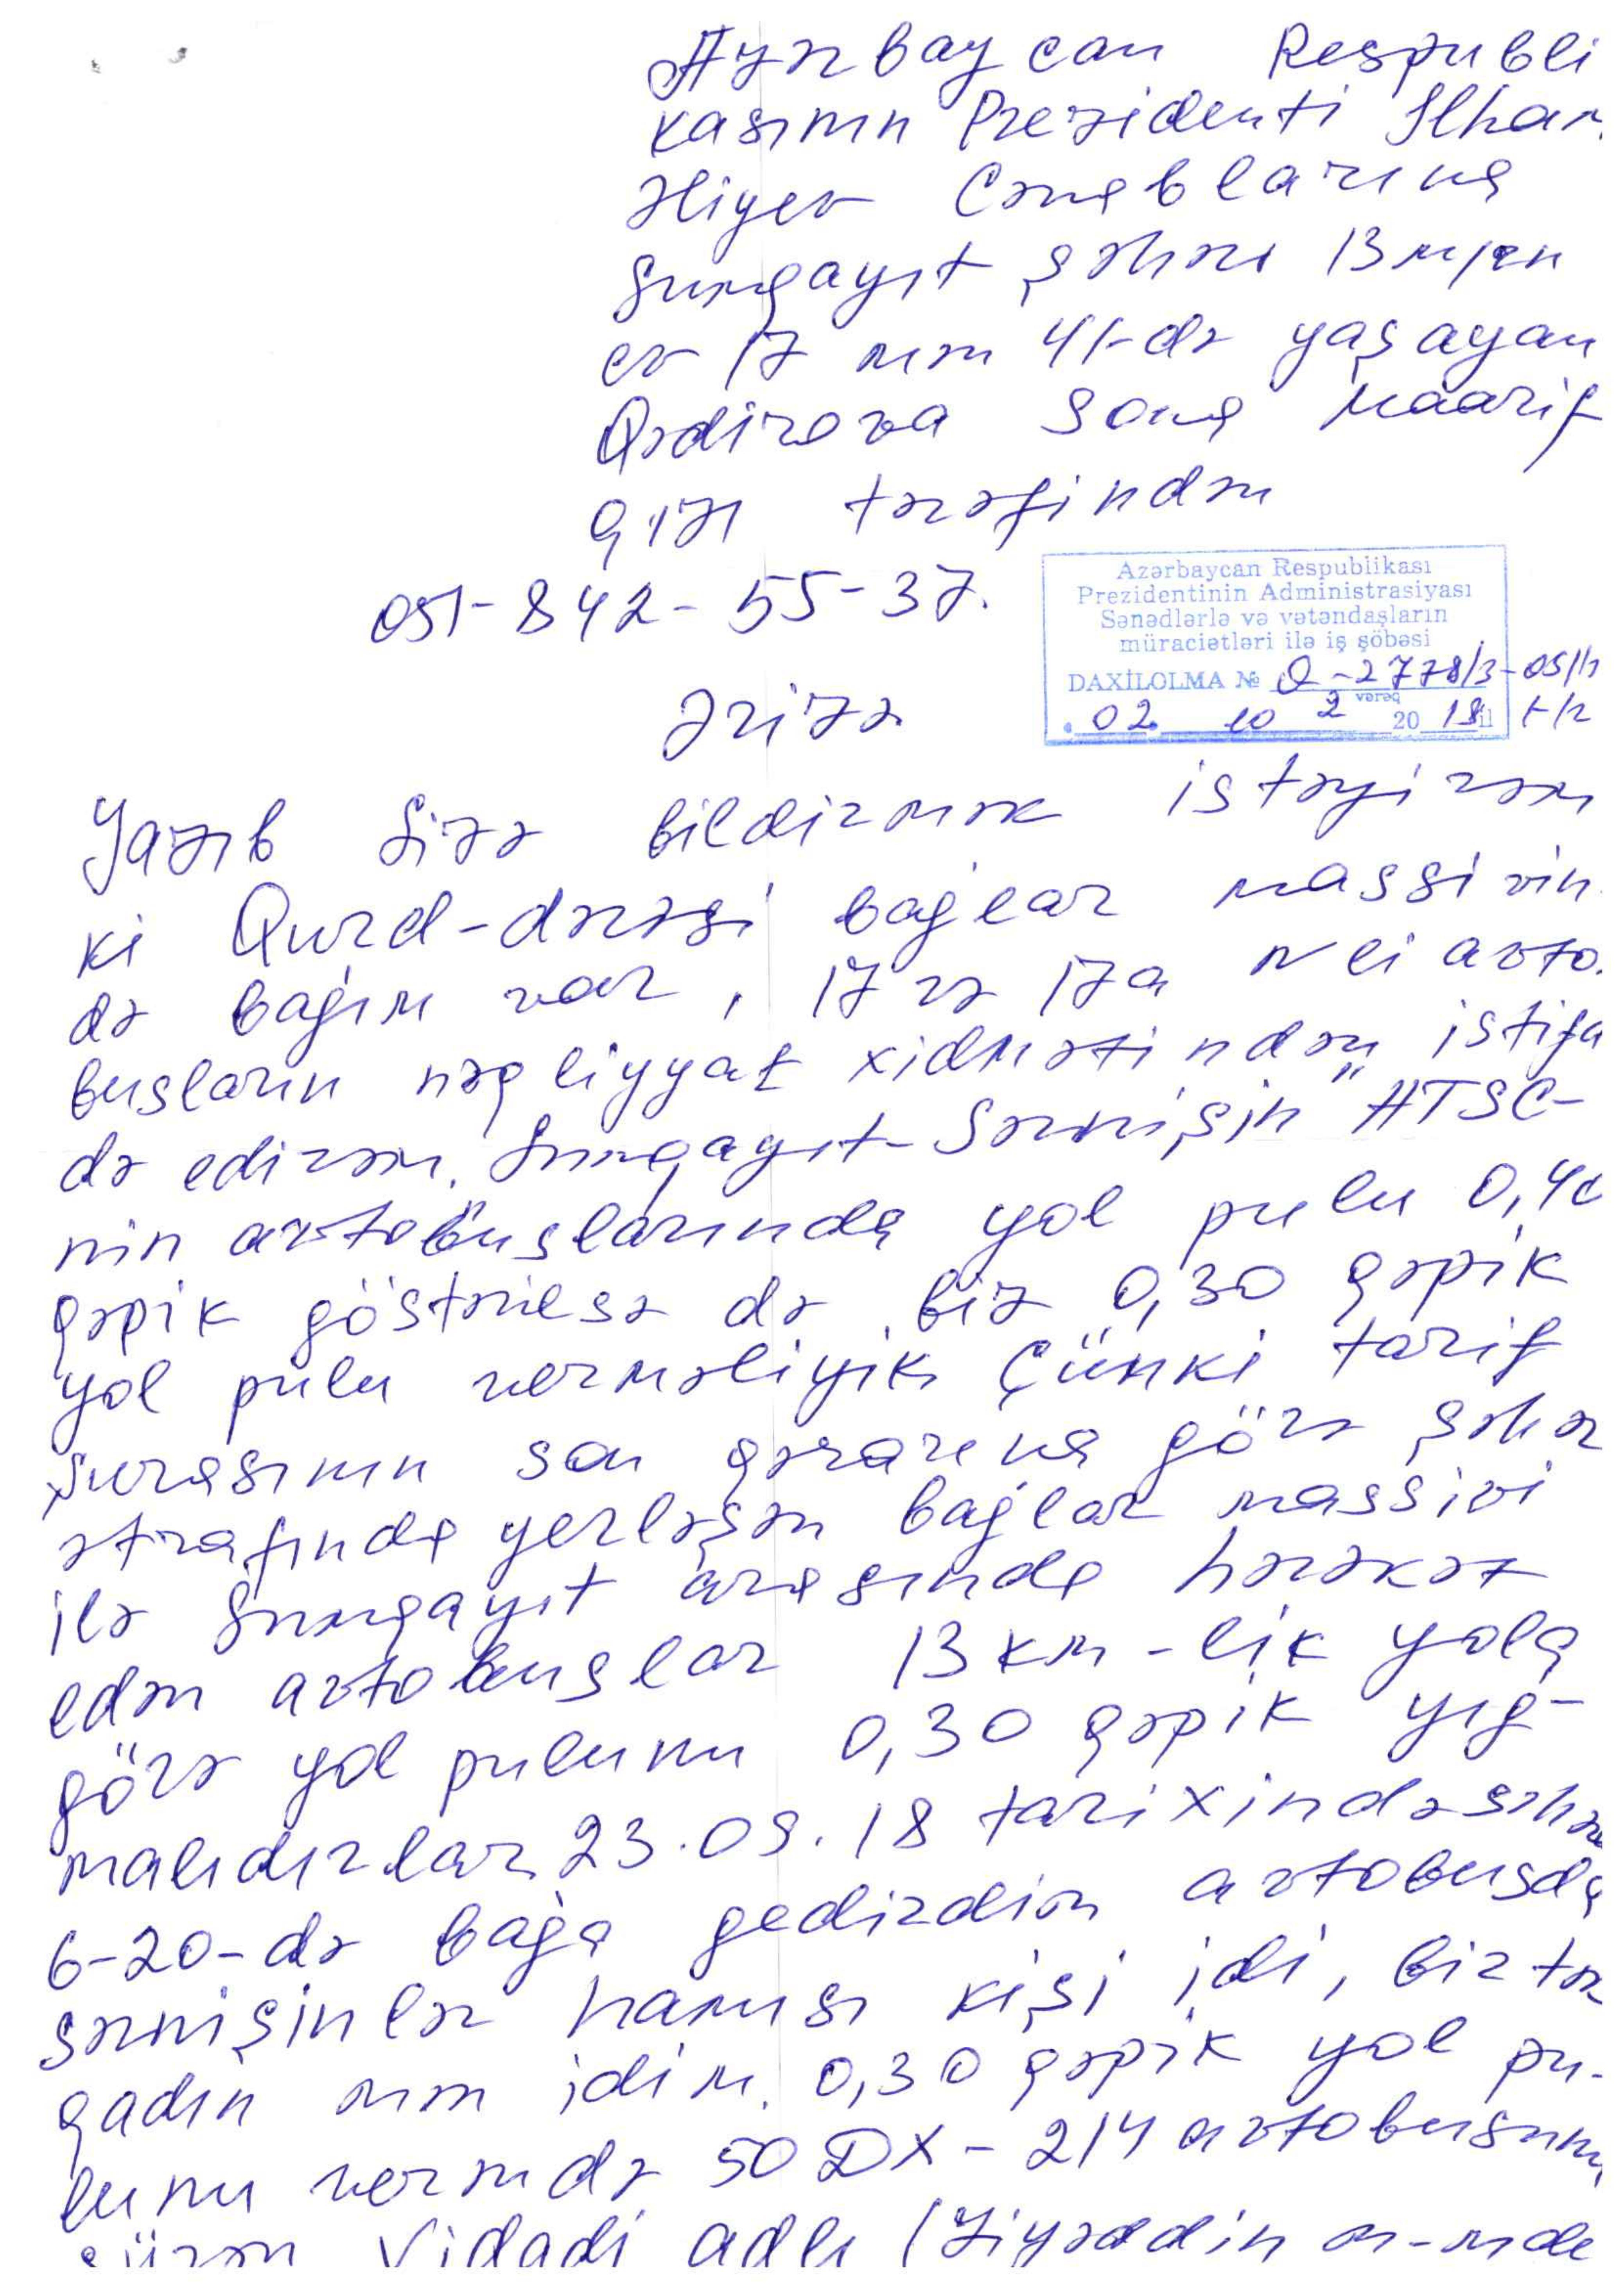 Azərbaycan Respubli
kasının Prezidenti İlham
Əliyev Cənablarına
Sumqayıt şəhəri 13 mkrn
ev 17 mən 41-də yaşayan
Qədirova Sona Maarif
qızı tərəfindən
051-842-55-37.
Azərbaycan Respublikası
Prezidentinin Administrasiyası
Sənədlərlə və vətəndaşların
müraciətləri ilə iş şöbəsi
DAXİLOLMA № Q-2778/3-05/1
vərəq
02. 10 2 2018 il
Ərizə
Yazıb Sizə bildirmək istəyirəm
ki Qurd-dərəsi bağlar massivin
də bağım var, 17 və 17a N li avto
busların nəqliyyat xidmətindən istifa
də edirəm. Sumqayıt-Sərnişin" ATSC-
nin avtobuslarında yol pulu 0,40
qəpik göstərilsə də biz 0,30 qəpik
yol pulu verməliyik Çünki tarif
şurasının son qərarına görə şəhər
ətrafında yerləşən bağlar massivi
ilə Sumqayıt arasında hərəkət
edən avtobuslar 13 km-lik yola
görə yol pulunu 0,30 qəpik yığ-
malıdırlar 23.09.18 tarixində səhər
6-20-də bağa gedirdim avtobusda
sərnişinlər hamısı kişi idi, bir tək
qadın mən idim. 0,30 qəpik yol pu-
lunu verəndə 50 DX-214 avtobusunu
sürən Vidadi adlı (Ziyəddin